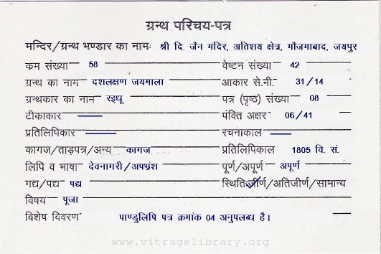 ग्रन्थ परिचय-पत्र
मन्दिर/ग्रन्थ भण्डार का नामः श्री दि. जैन मंदिर, अतिशय क्षेत्र, मौजमाबाद, जयपुर
क्रम संख्या 58 वेष्टन संख्या 42
ग्रन्थ का नाम दशलक्षण जयमाला आकार से.मी. 31/14
ग्रन्थकार का नाम रइधू पत्र (पृष्ठ) संख्या 08
टीकाकार पंक्ति अक्षर 06/41
प्रतिलिपिकार रचनाकाल
कागज/ताड़पत्र/अन्य कागज प्रतिलिपिकाल 1805 वि. सं.
लिपि व भाषा देवनागरी/अपभ्रंश पूर्ण/अपूर्ण अपूर्ण
गद्य/पद्य पद्य स्थिति जीर्ण/अतिजीर्ण/सामान्य
विषय पूजा
विशेष विवरण पाण्डुलिपि पत्र क्रमांक 04 अनुपलब्ध है।
www.vitragelibrary.org